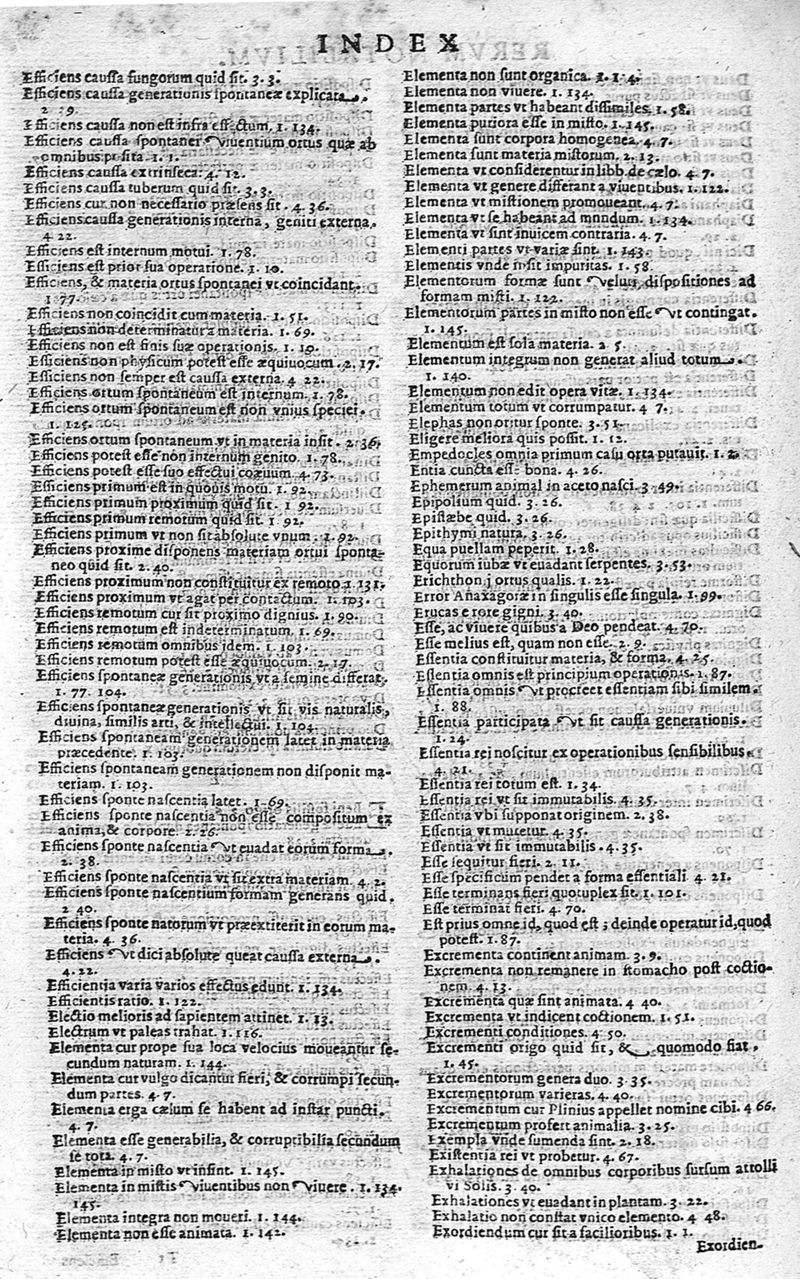 INDEX
Efficiens caussa fungorum quid sit. 3. 3.
Efficiens caussa generationis spontaneæ explicata.
2. 9.
Efficiens caussa non est infra effectum. 1. 134.
Efficiens caussa spontanei viuentium ortus quæ ab
omnibus posita. 1. 1.
Efficiens caussa extrinseca. 4. 12.
Efficiens caussa tuberum quid sit. 3. 3.
Efficiens cur non necessario præsens sit. 4. 36.
Efficiens caussa generationis interna, geniti externa.
4 22.
Efficiens est internum motui. 1. 78.
Efficiens est prior sua operatione. 1. 10.
Efficiens, & materia ortus spontanei vt coincidant.
1. 77.
Efficiens non coincidit cum materia. 1. 51.
Efficiens non determinatur a materia. 1. 69.
Efficiens non est finis suæ operationis. 1. 10.
Efficiens non physicum potest esse æquiuocum. 2. 17.
Efficiens non semper est caussa externa. 4 22.
Efficiens ortum spontaneum est internum. 1. 78.
Efficiens ortum spontaneum est non vnius speciei.
1. 125.
Efficiens ortum spontaneum vt in materia insit. 2. 36.
Efficiens potest esse non internum genito. 1. 78.
Efficiens potest esse suo effectui coæuum. 4. 73.
Efficiens primum est in quouis motu. 1. 92.
Efficiens primum proximum quid sit. 1 92.
Efficiens primum remotum quid sit. 1. 92.
Efficiens primum vt non sit absolute vnum. 1. 92.
Efficiens proxime disponens materiam ortui sponta-
neo quid sit. 2. 40.
Efficiens proximum non constituitur ex remoto. 1. 131.
Efficiens proximum vt agat per contactum. 1. 103.
Efficiens remotum cur sit proximo dignius. 1. 90.
Efficiens remotum est indeterminatum. 1. 69.
Efficiens remotum omnibus idem. 1. 103.
Efficiens remotum potest esse æquiuocum. 2. 17.
Efficiens spontaneæ generationis vt a semine differat.
1. 77. 104.
Efficiens spontaneæ generationis vt sit vis naturalis,
diuina, similis arti, & intellectui. 1. 104.
Efficiens spontaneam generationem latet in materia
præcedente. 1. 103.
Efficiens spontaneam generationem non disponit ma-
teriam. 1. 103.
Efficiens sponte nascentia latet. 1. 69.
Efficiens sponte nascentia non esse compositum ex
anima, & corpore. 1. 26.
Efficiens sponte nascentia vt euadat eorum forma.
2. 38.
Efficiens sponte nascentia vt sit extra materiam. 4. 2.
Efficiens sponte nascentium formam generans quid.
2 40.
Efficiens sponte natorum vt præextiterit in eorum ma-
teria. 4. 36.
Efficiens vt dici absolute queat caussa externa.
4. 22.
Efficientia varia varios effectus edunt. 1. 134.
Efficientis ratio. 1. 122.
Electio melioris ad sapientem attinet. 1. 13.
Electrum vt paleas trahat. 1. 116.
Elementa cur prope sua loca velocius moueantur se-
cundum naturam. 1. 144.
Elementa cur vulgo dicantur fieri, & corrumpi secun-
dum partes. 4. 7.
Elementa erga cælum se habent ad instar puncti.
4. 7.
Elementa esse generabilia, & corruptibilia secundum
se tota. 4. 7.
Elementa in misto vt insint. 1. 145.
Elementa in mistis viuentibus non viuere. 1. 134.
145.
Elementa integra non moueri. 1. 144.
Elementa non esse animata. 1. 142.
Elementa non sunt organica. 1. 14.
Elementa non viuere. 1. 134.
Elementa partes vt habeant dissimiles. 1. 58.
Elementa putiora esse in misto. 1. 145.
Elementa sunt corpora homogenea. 4. 7.
Elementa sunt materia mistorum. 2. 13.
Elementa vt considerentur in libb. de cælo. 4. 7.
Elementa vt genere differant a viuentibus. 1. 122.
Elementa vt mistionem promoueant. 4. 7.
Elementa vt se habeant ad mundum. 1. 134.
Elementa vt sint inuicem contraria. 4. 7.
Elementi partes vt variæ sint. 1. 143.
Elementis vnde insit impuritas. 1. 58.
Elementorum formæ sunt veluti dispositiones ad
formam misti. 1. 122.
Elementorum partes in misto non esse vt contingat.
1. 145.
Elementum est sola materia. 2 5.
Elementum integrum non generat aliud totum.
1. 140.
Elementum non edit opera vitæ. 1. 134.
Elementum totum vt corrumpatur. 4 7.
Elephas non oritur sponte. 3. 51.
Eligere meliora quis possit. 1. 12.
Empedocles omnia primum casu orta putauit. 1. 2.
Entia cuncta esse bona. 4. 26.
Ephemerum animal in aceto nasci. 3. 49.
Epipolium quid. 3. 26.
Epistæbe quid. 3. 26.
Epithymi natura. 3. 26.
Equa puellam peperit. 1. 28.
Equorum iubæ vt euadant serpentes. 3. 53.
Erichthonij ortus qualis. 1. 22.
Error Anaxagoræ in singulis esse singula. 1. 99.
Erucas e rore gigni. 3. 40.
Esse, ac viuere quibus a Deo pendeat. 4. 70.
Esse melius est, quam non esse. 2. 9.
Essentia constituitur materia, & forma. 4. 25.
Essentia omnis est principium operationis. 1. 87.
Essentia omnis vt procreet essentiam sibi similem.
1. 88.
Essentia participata vt sit caussa generationis.
1. 24.
Essentia rei noscitur ex operationibus sensibilibus.
4. 21.
Essentia rei totum est. 1. 34.
Essentia rei vt sit immutabilis. 4. 35.
Essentia vbi supponat originem. 2. 38.
Essentia vt mutetur. 4. 35.
Essentia vt sit immutabilis. 4. 35.
Esse sequitur fieri. 2. 11.
Esse specificum pendet a forma essentiali 4. 21.
Esse terminans fieri quotuplex sit. 1. 101.
Esse terminat fieri. 4. 70.
Est prius omne id, quod est; deinde operatur id, quod
potest. 1. 87.
Excrementa continent animam. 3. 9.
Excrementa non remanere in stomacho post coctio-
nem. 4. 13.
Excrementa quæ sint animata. 4 40.
Excrementa vt indicent coctionem. 1. 51.
Excrementi conditiones. 4. 50.
Excrementi origo quid sit, & quomodo fiat.
1. 45.
Excrementorum genera duo. 3. 35.
Excrementorum varietas. 4. 40.
Excrementum cur Plinius appellet nomine cibi. 4 66.
Excrementum profert animalia. 3. 25.
Exempla vnde sumenda sint. 2. 18.
Existentia rei vt probetur. 4. 67.
Exhalationes de omnibus corporibus sursum attolli
vi Solis. 3. 40.
Exhalationes vt euadant in plantam. 3. 22.
Exhalatio non constat vnico elemento. 4 48.
Exordiendum cur sit a facilioribus. 1. 1.
Exordien-